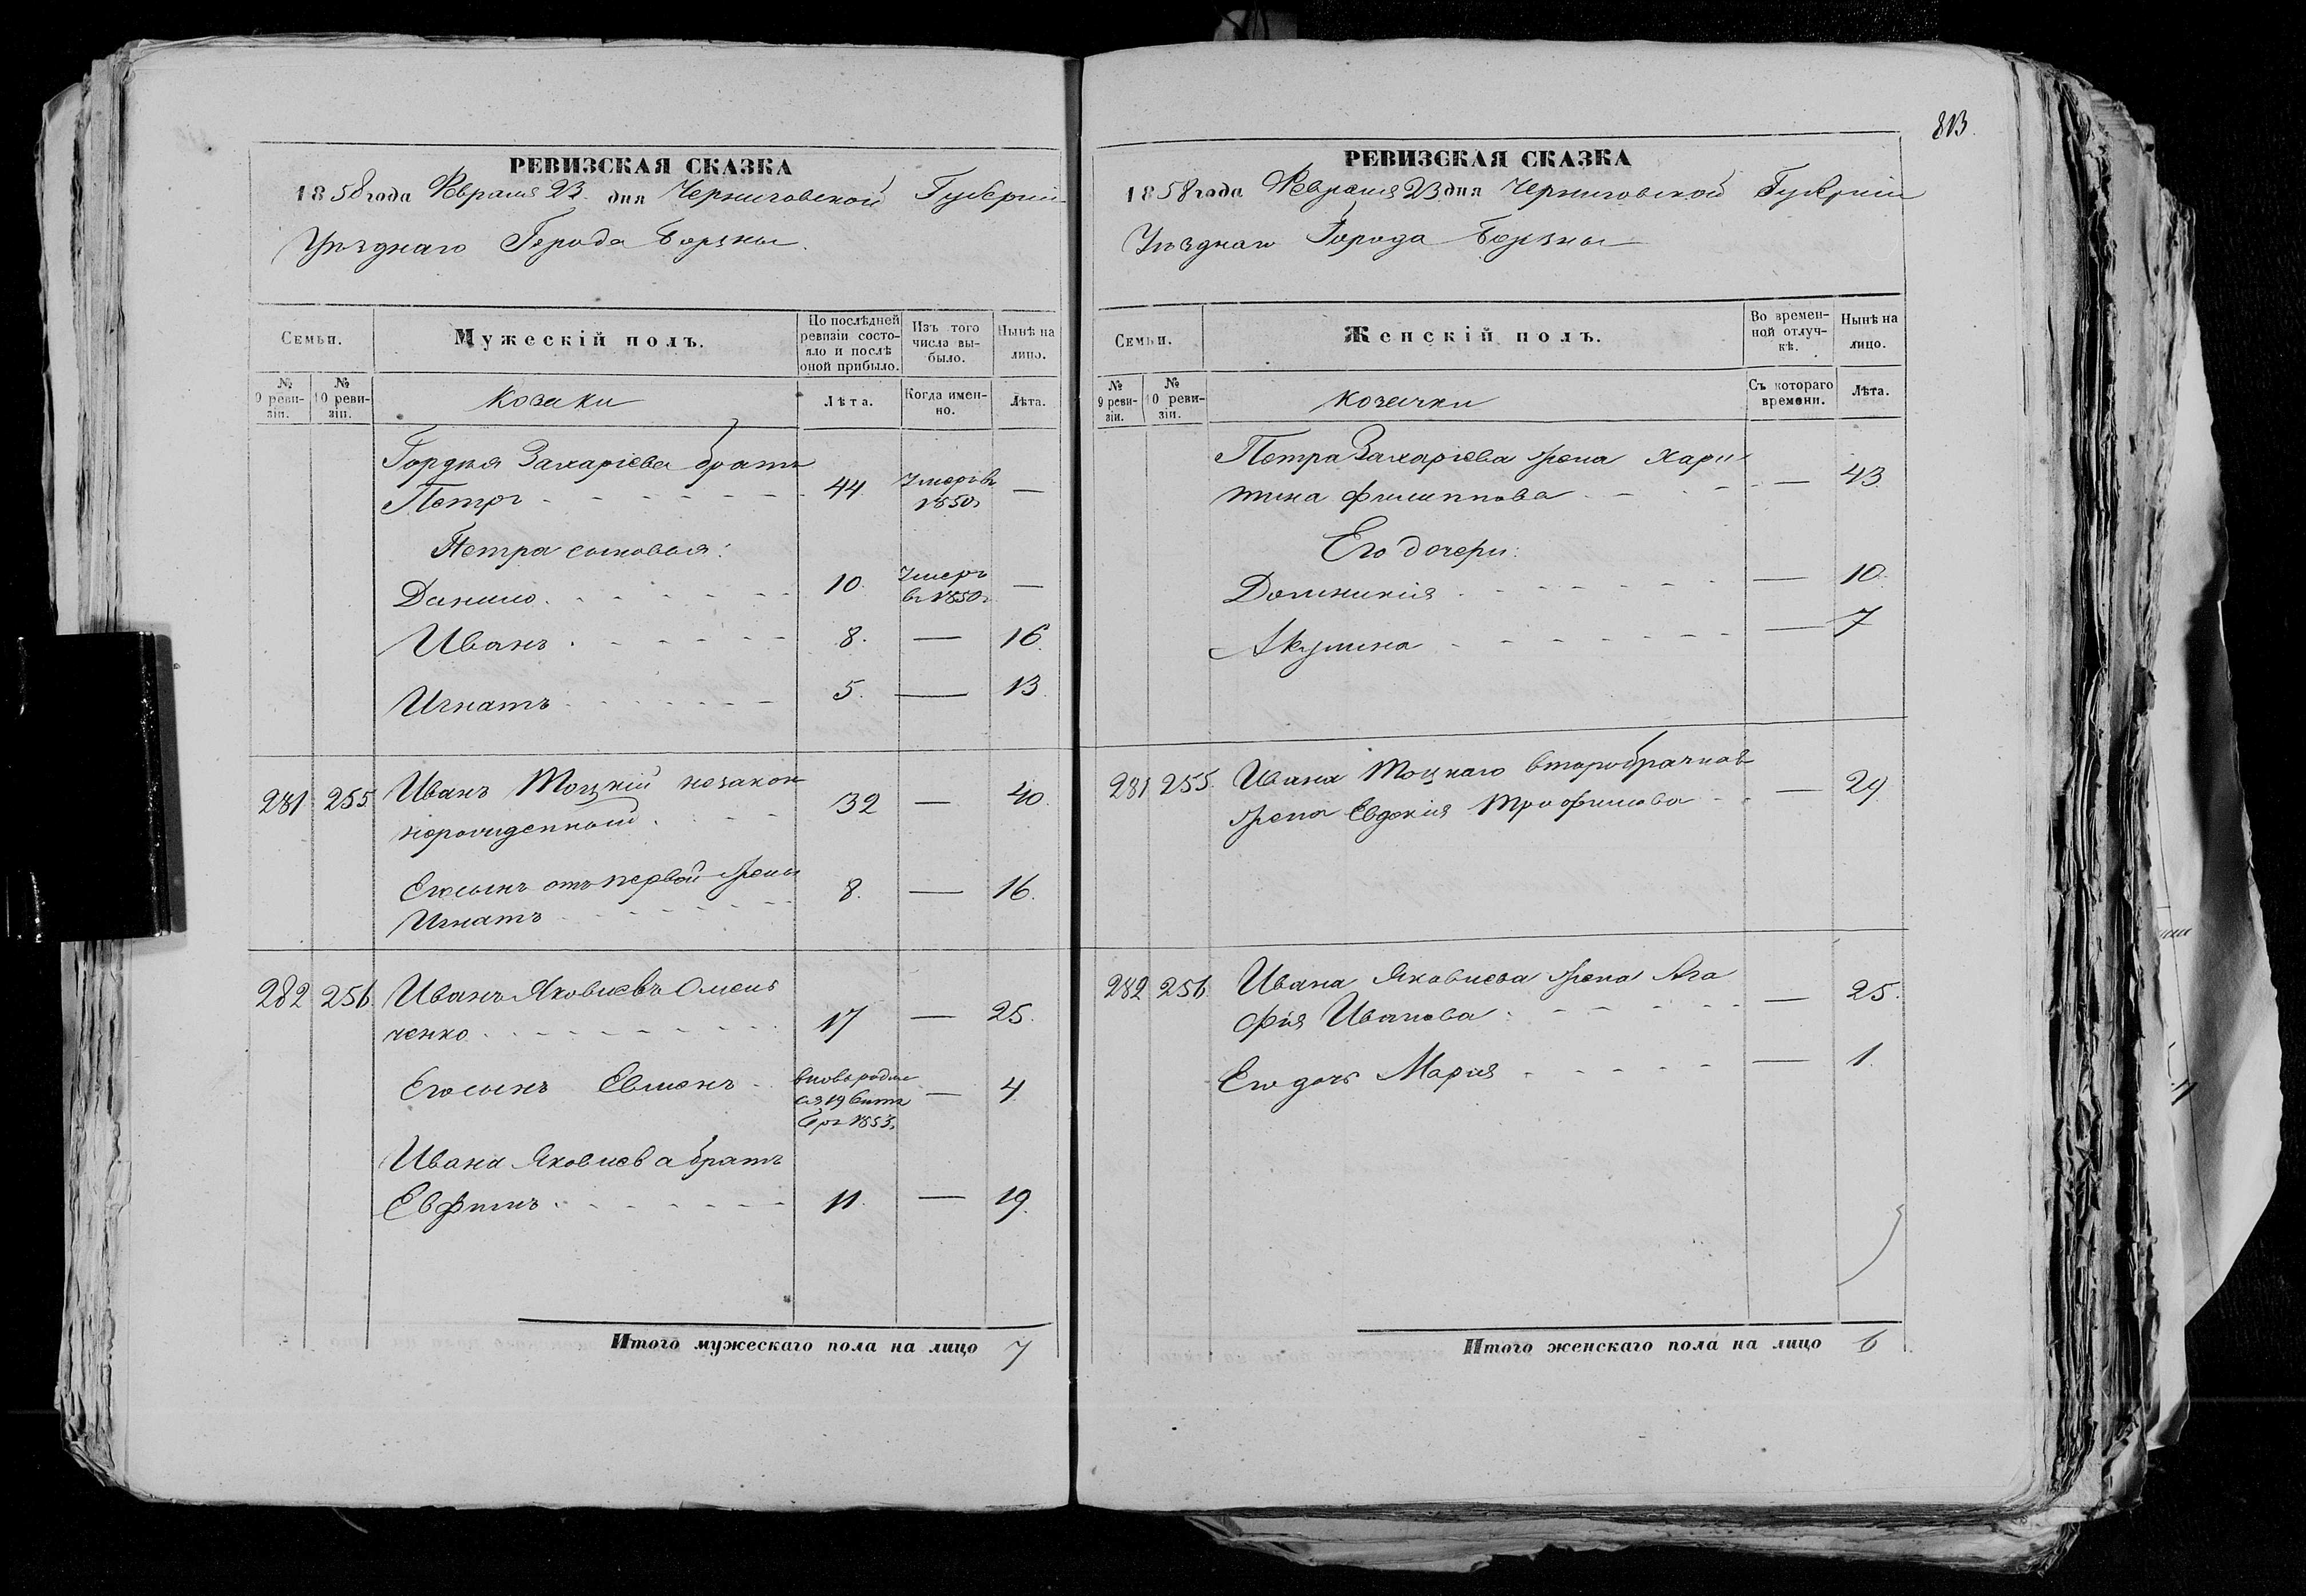 РЕВИЗСКАЯ СКАЗКА
1858 года Февраля 23 дня Черниговской Губерніи
Уѣзднаго Города Борзны.
Семьи.
Мужескій полъ.
По послѣдней ревизіи состояло и послѣ оной прибыло.
Изъ того числа выбыло.
Нынѣ на лицо.
№ 9 ревизіи.
№ 10 ревизіи.
Козаки
Лѣта.
Когда именно.
Лѣта.
Гордѣя Захаріева братъ
Петръ 44 Умеръ въ 1850 —
Петра сыновья:
Данило 10 Умеръ въ 1850 —
Иванъ 8 — 16
Игнатъ 5 — 13
281 255 Иванъ Тоцкій незакон
норожденный 32 — 40
Его сынъ отъ первой жены
Игнатъ 8 — 16
282 256 Иванъ Яковлевъ Омель
ченко 17 — 25
Его сынъ Евменъ вновь родил
ся 19 Октя
бря 1853 — 4
Ивана Яковлева братъ
Евфимъ 11 — 19
Итого мужескаго пола на лицо 7
813
РЕВИЗСКАЯ СКАЗКА
1858 года Февраля 23 дня Черниговской Губерніи
Уѣзднаго Города Борзны
Семьи.
Женскій полъ.
Во временной отлучкѣ.
Нынѣ на лицо.
№ 9 ревизіи.
№ 10 ревизіи.
Козачки
Съ котораго времени.
Лѣта.
Петра Захаріева жена Хари
тина Филиппова — 43
Его дочери:
Домникія — 10
Акулина — 7
281 255 Ивана Тоцкаго второбрачная
жена Евдокія Трофимова — 29
282 256 Ивана Яковлева жена Ага
фія Иванова — 25
Его дочь Марія — 1
Итого женскаго пола на лицо 6